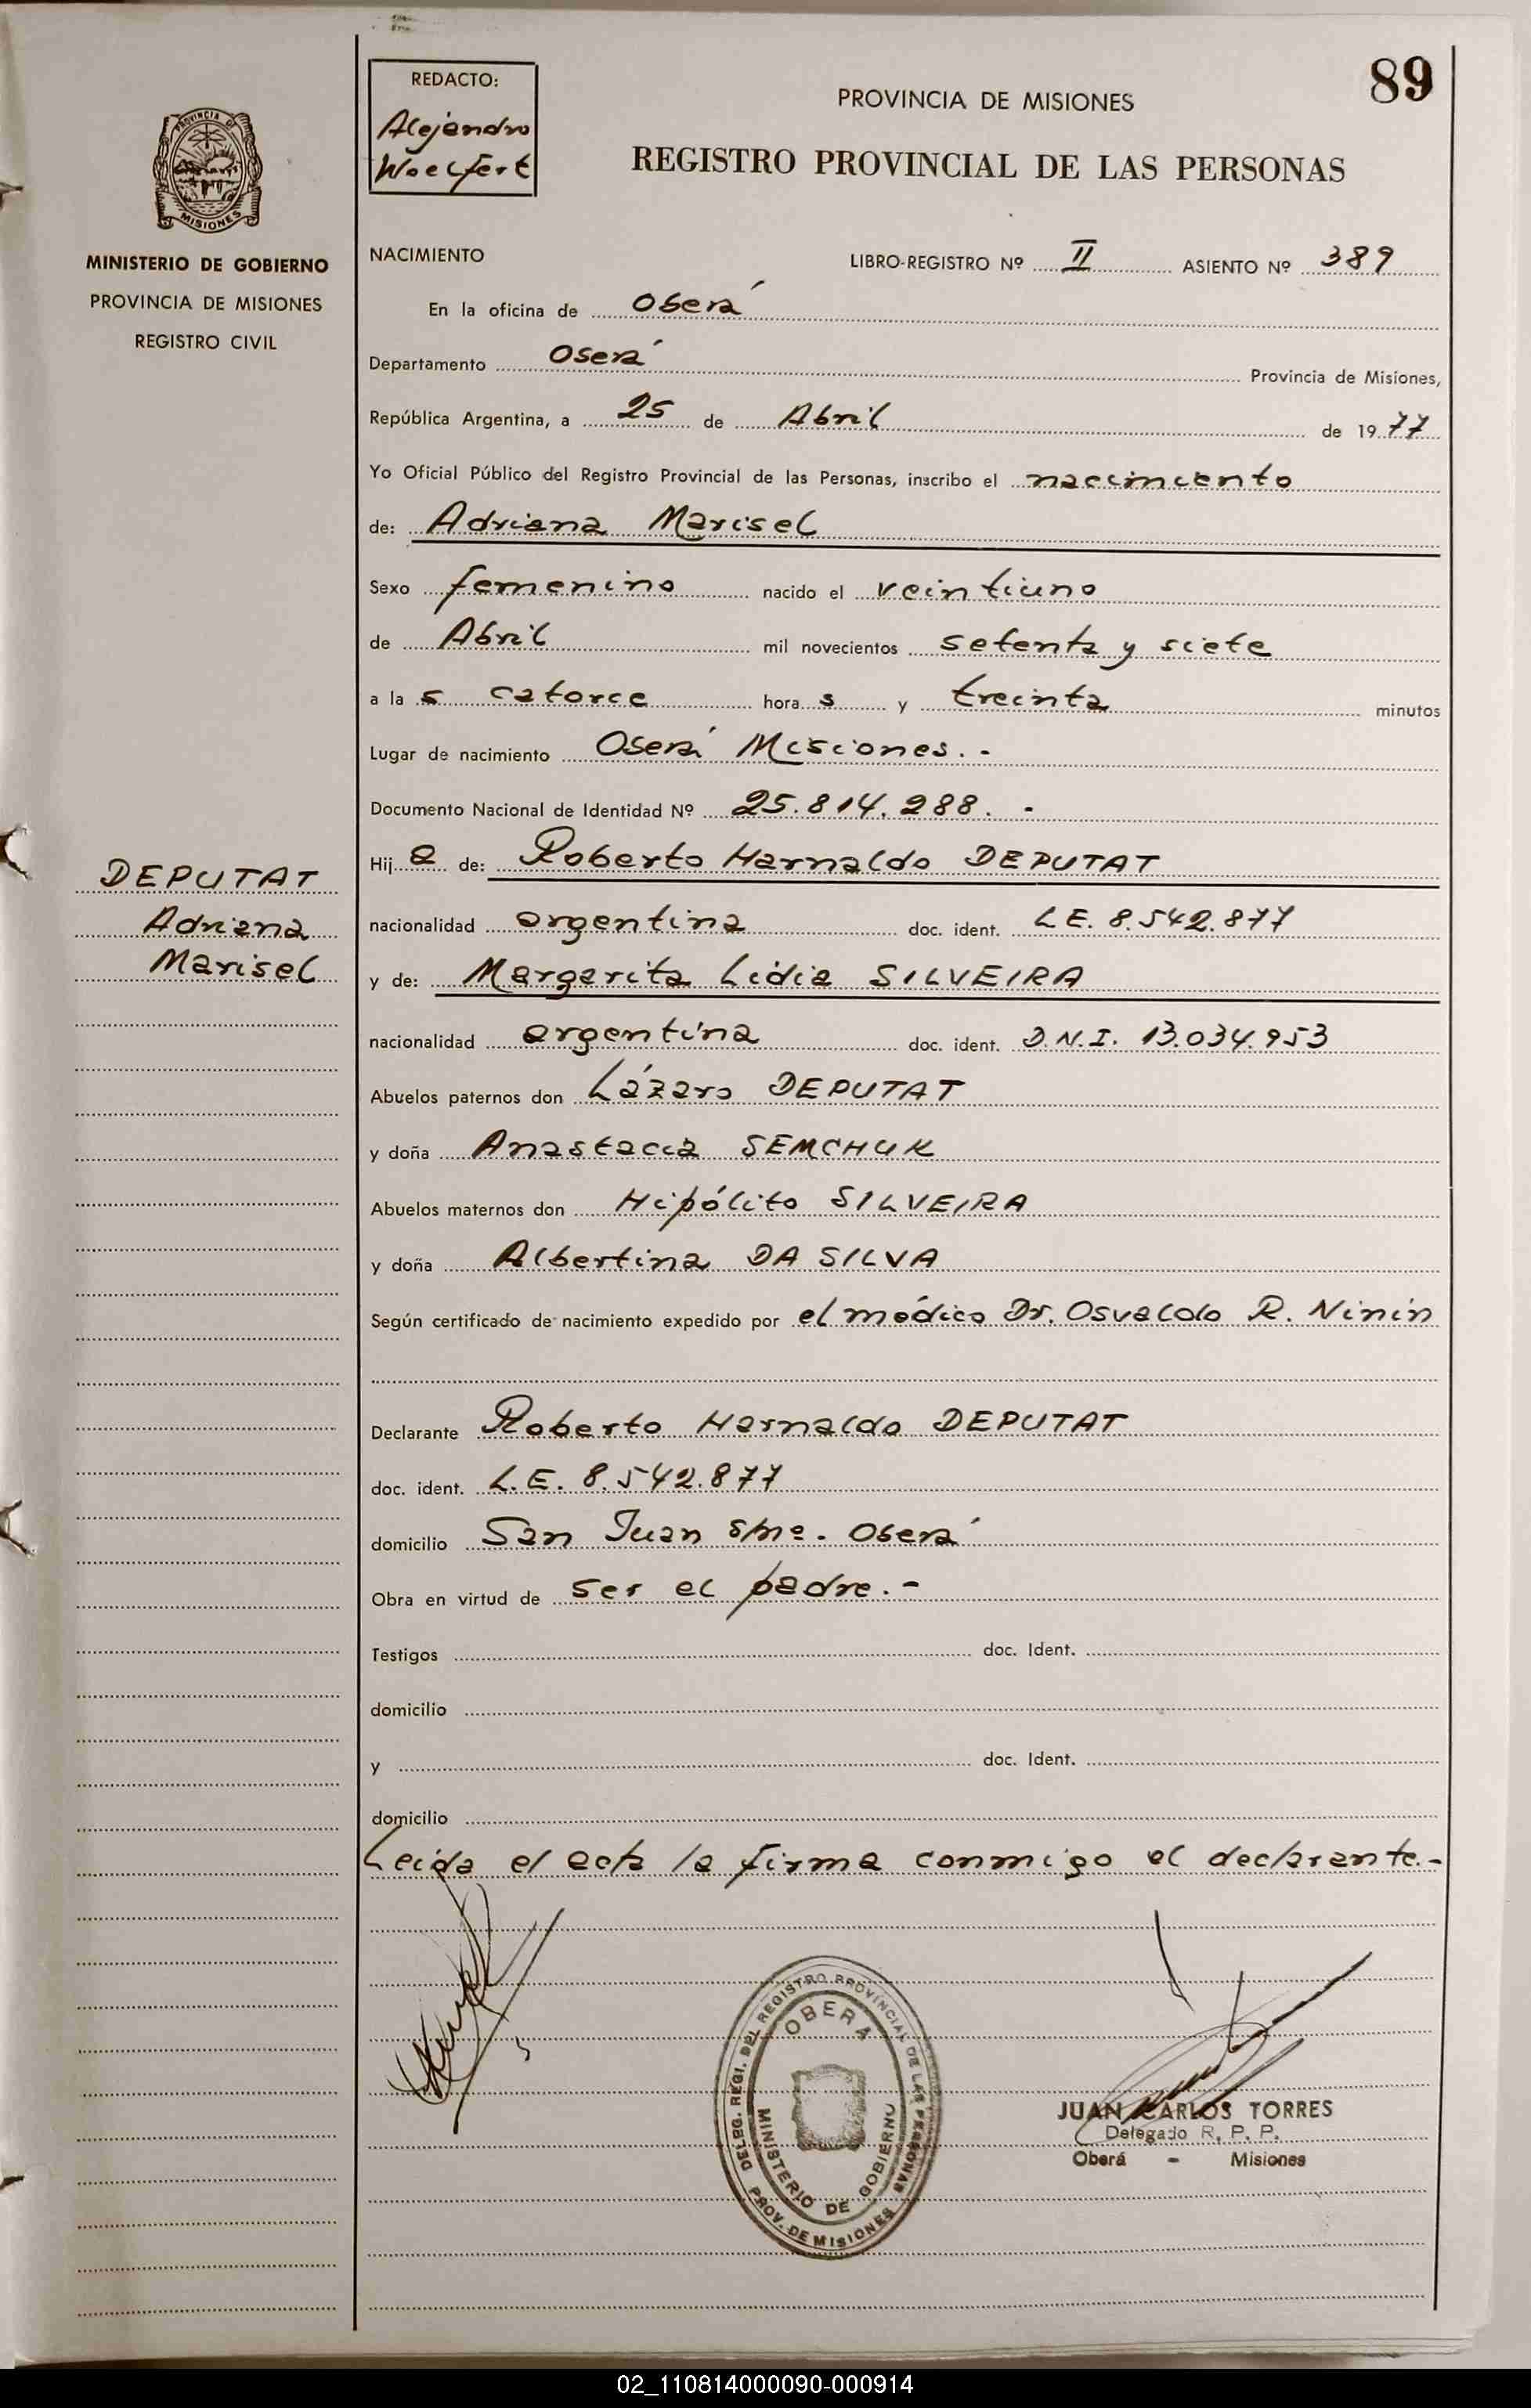 REDACTO:
Alejandro
Woelfert
89
PROVINCIA DE MISIONES
REGISTRO PROVINCIAL DE LAS PERSONAS
PROVINCIA DE
MISIONES
MINISTERIO DE GOBIERNO
PROVINCIA DE MISIONES
REGISTRO CIVIL
NACIMIENTO LIBRO-REGISTRO Nº II ASIENTO Nº 389
En la oficina de Oberá
Departamento Oberá Provincia de Misiones,
República Argentina, a 25 de Abril de 1977
Yo Oficial Público del Registro Provincial de las Personas, inscribo el nacimiento
de: Adriana Marisel
Sexo femenino nacido el veintiuno
de Abril mil novecientos setenta y siete
a la s catorce hora s y treinta minutos
Lugar de nacimiento Oberá Misiones.-
Documento Nacional de Identidad Nº 25.814.288.-
Hij a de: Roberto Harnaldo DEPUTAT
DEPUTAT
Adriana
Marisel
nacionalidad argentina doc. ident. L.E. 8.542.877
y de: Margarita Lidia SILVEIRA
nacionalidad argentina doc. ident. D.N.I. 13.034.953
Abuelos paternos don Lázaro DEPUTAT
y doña Anastacia SEMCHUK
Abuelos maternos don Hipólito SILVEIRA
y doña Albertina DA SILVA
Según certificado de nacimiento expedido por el médico Dr. Osvaldo R. Ninin
Declarante Roberto Harnaldo DEPUTAT
doc. ident. L.E. 8.542.877
domicilio San Juan s/nº. Oberá
Obra en virtud de ser el padre.-
Testigos doc. Ident.
domicilio
y doc. Ident.
domicilio
Leida el acta la firma conmigo el declarante.-
DELEG. REGI. DEL REGISTRO PROVINCIAL DE LAS PERSONAS
OBERA
MINISTERIO DE GOBIERNO
PROV. DE MISIONES
JUAN CARLOS TORRES
Delegado R. P. P.
Oberá - Misiones
02_110814000090-000914